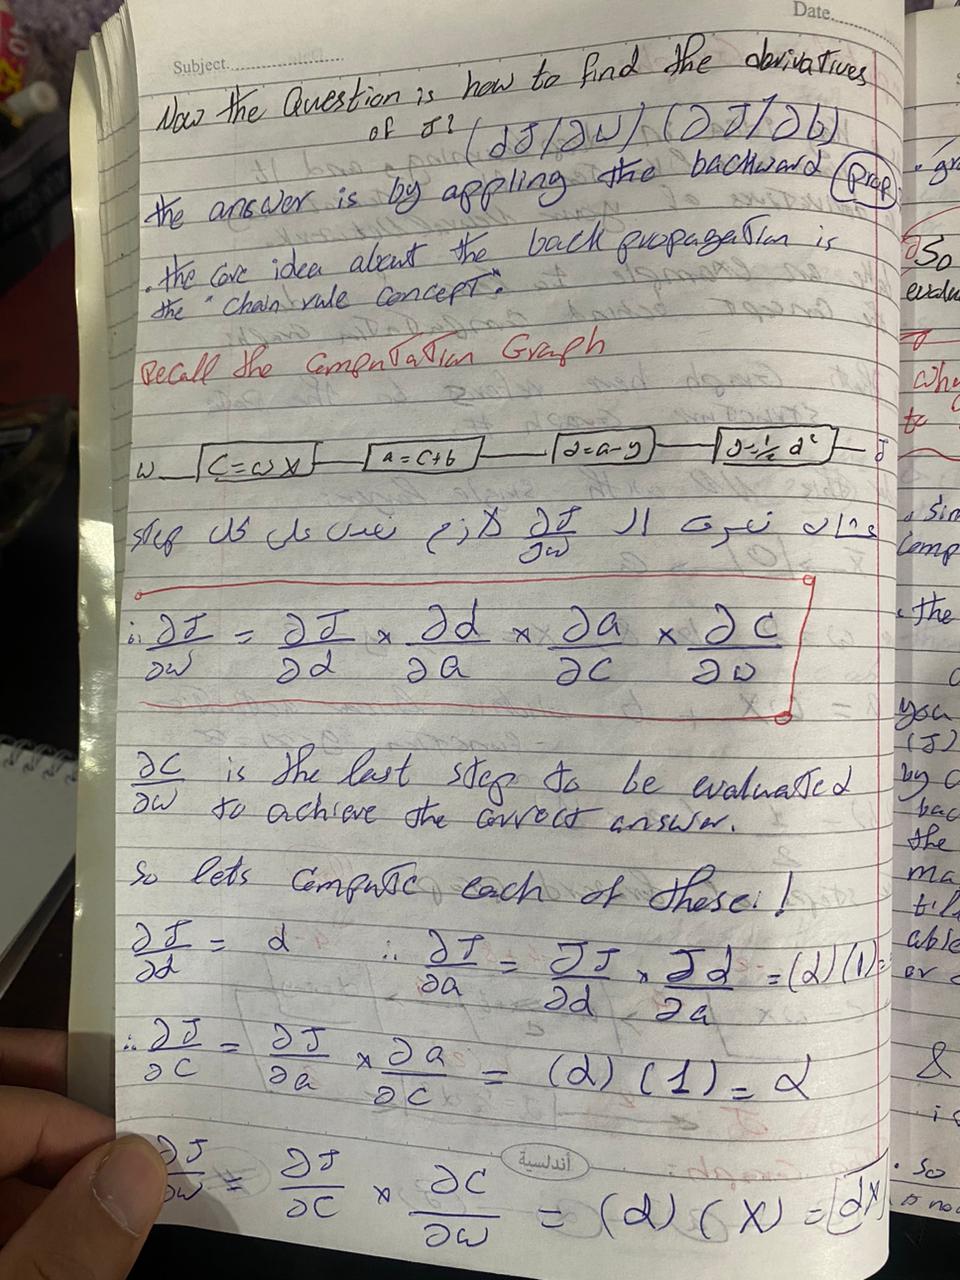 Date..............
Subject..........................
Now the Question is how to find the derivatives
of J? (∂J/∂w) (∂J/∂b)
the answer is by appling the backward prop.
. the core idea about the back propagation is
the "chain rule concept."
Recall the Computation Graph
w — C=wx — a=c+b — d=a-y — J=½ d² — J
علشان نعرف ال ∂J/∂w لازم نعدى على كل step
∴ ∂J/∂w = ∂J/∂d × ∂d/∂a × ∂a/∂C × ∂C/∂w
∂C/∂w is the last step to be evaluated
to achieve the correct answer.
So lets compute each of these!
∂J/∂d = d ∴ ∂J/∂a = ∂J/∂d × ∂d/∂a = (d)(1)=
∴ ∂J/∂C = ∂J/∂a × ∂a/∂C = (d) (1) = d
∂J/∂w = ∂J/∂C × ∂C/∂w = (d) (x) = dx
أندلسية
So
evalu
why
to
. Sin
Comp
. the
you
(J)
by
bac
the
ma
able
or
&
is
. So